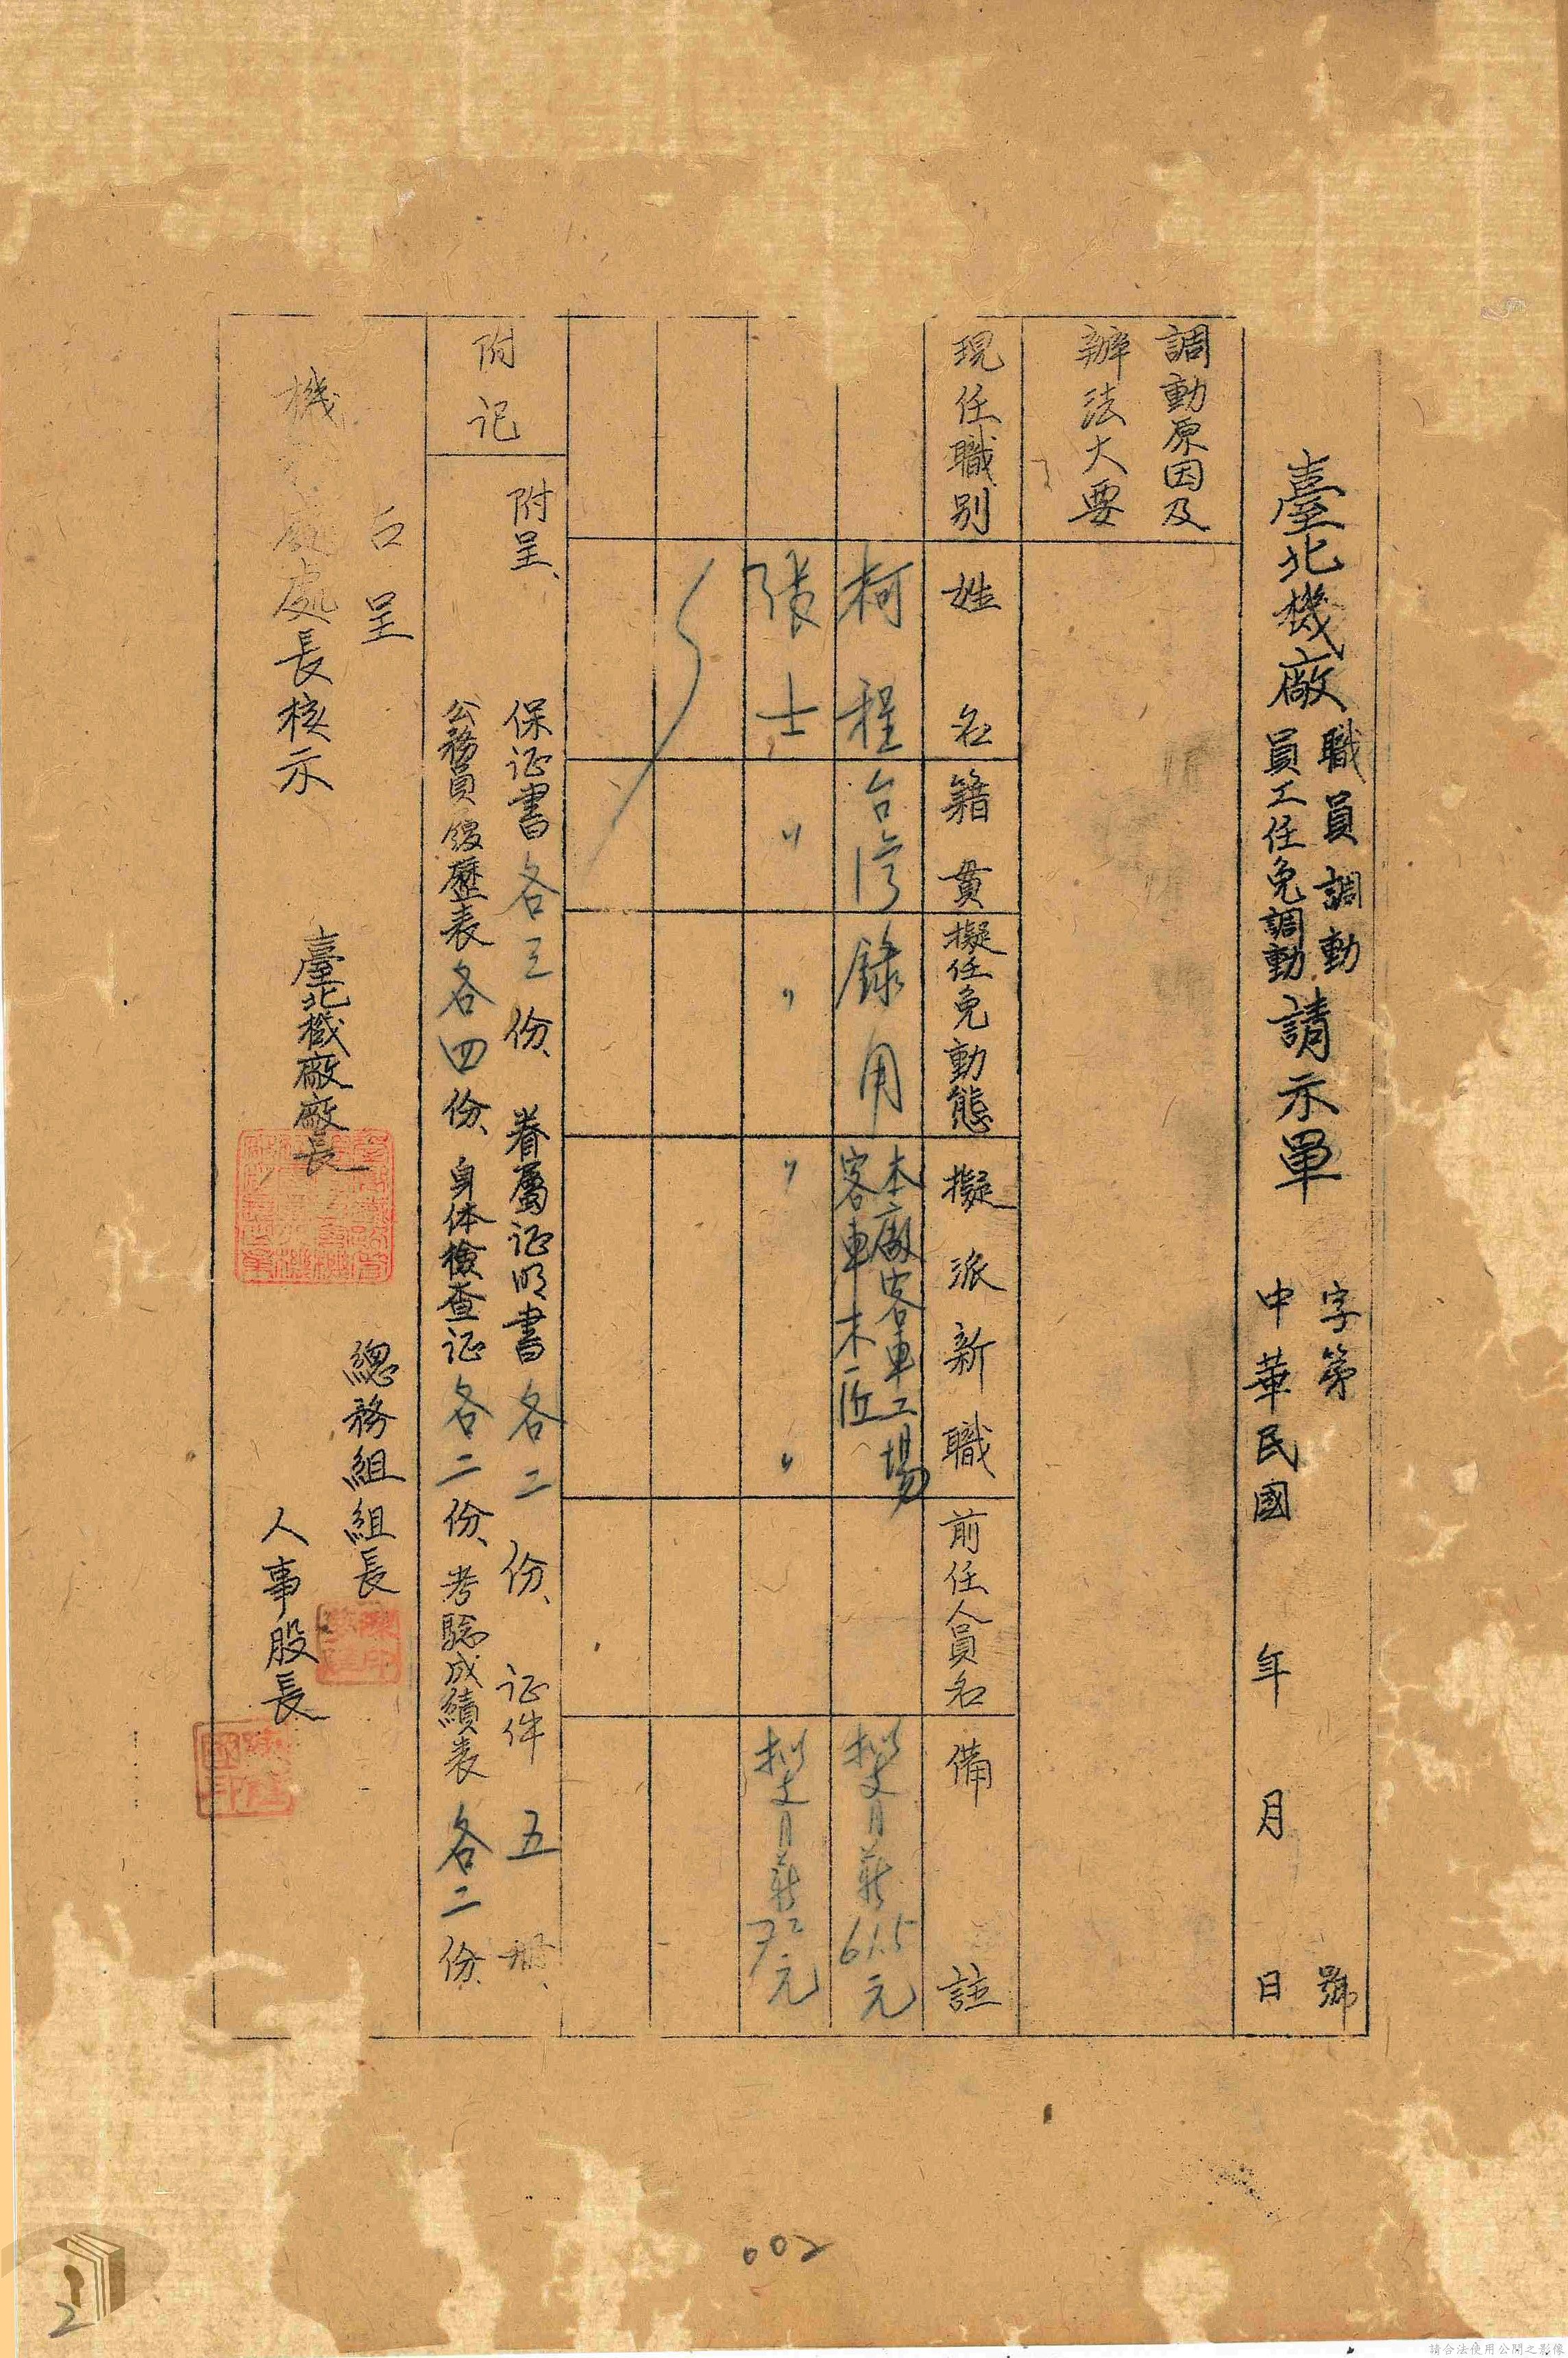 臺北機廠
職員調動
員工任免調動
請示單
字第 號
中華民國 年 月 日
調動原因及
辦法大要
現任職別 姓名 籍貫 擬任免動態 擬派新職 前任人員名 備註
柯程 台灣 錄用 本廠客車工場
客車木匠 擬支月薪 61.5元
張士 〃 〃 〃 〃 擬支月薪 72元
附記
附呈、保证書各三份、眷屬证明書各二份、证件五册、
公務員履歷表各四份、身体檢查证各二份、考驗成績表各二份
呈
機 處處長核示
臺北機廠廠長
總務組組長
人事股長
002
2
請合法使用公開之影像